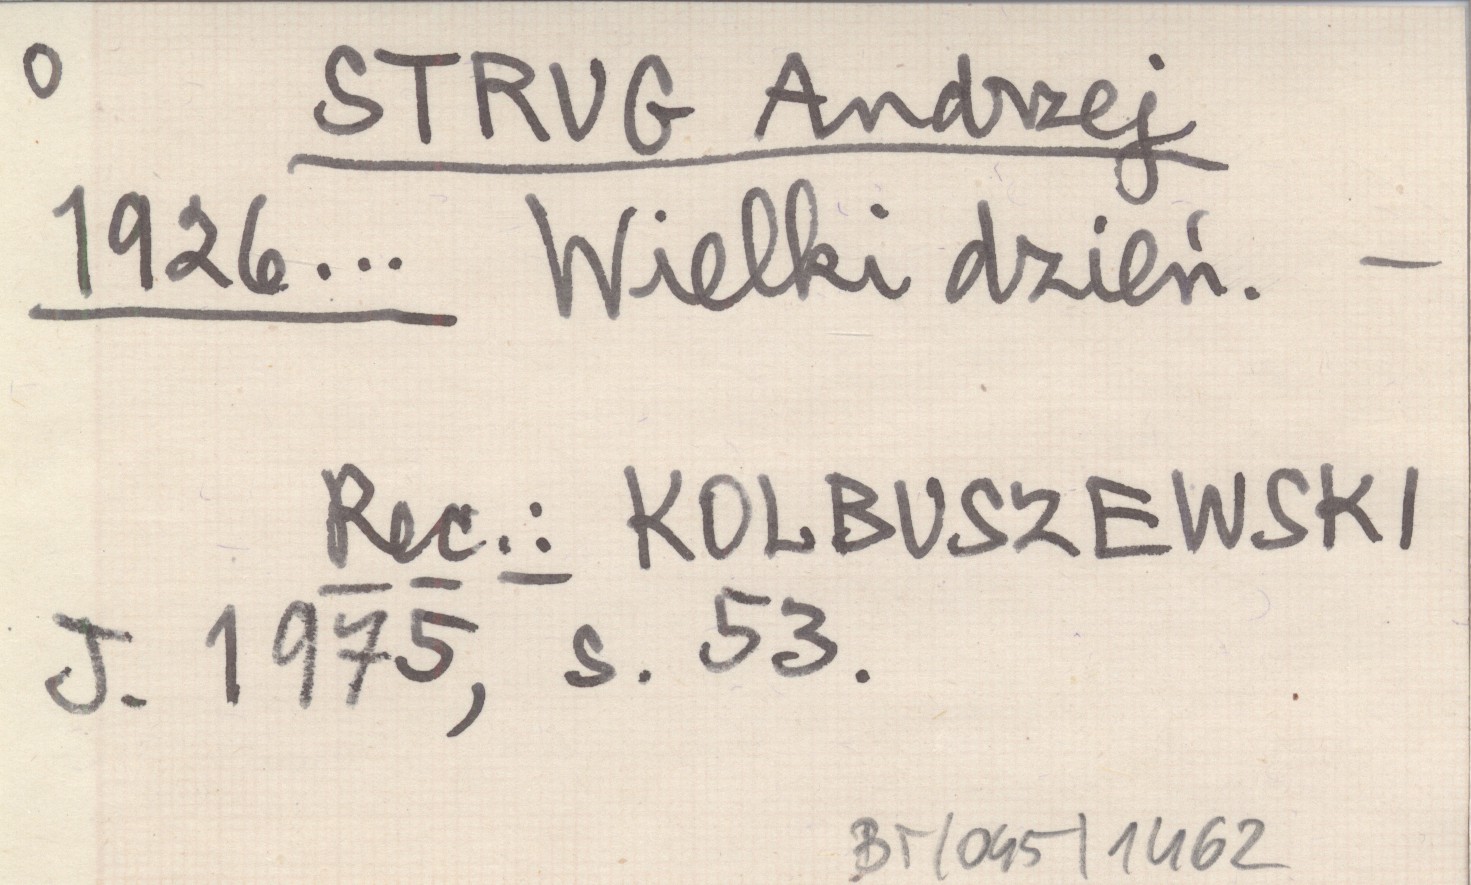 o STRUG Andrzej
1926... Wielki dzień. —
Rec.: KOLBUSZEWSKI
J. 1975, s. 53.
BT/045/1462